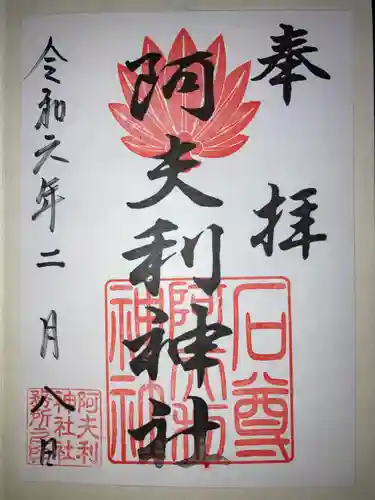 奉拝
阿夫利神社
令和元年二月八日
石尊
阿夫利
神社
阿夫利
神社社
務所之印